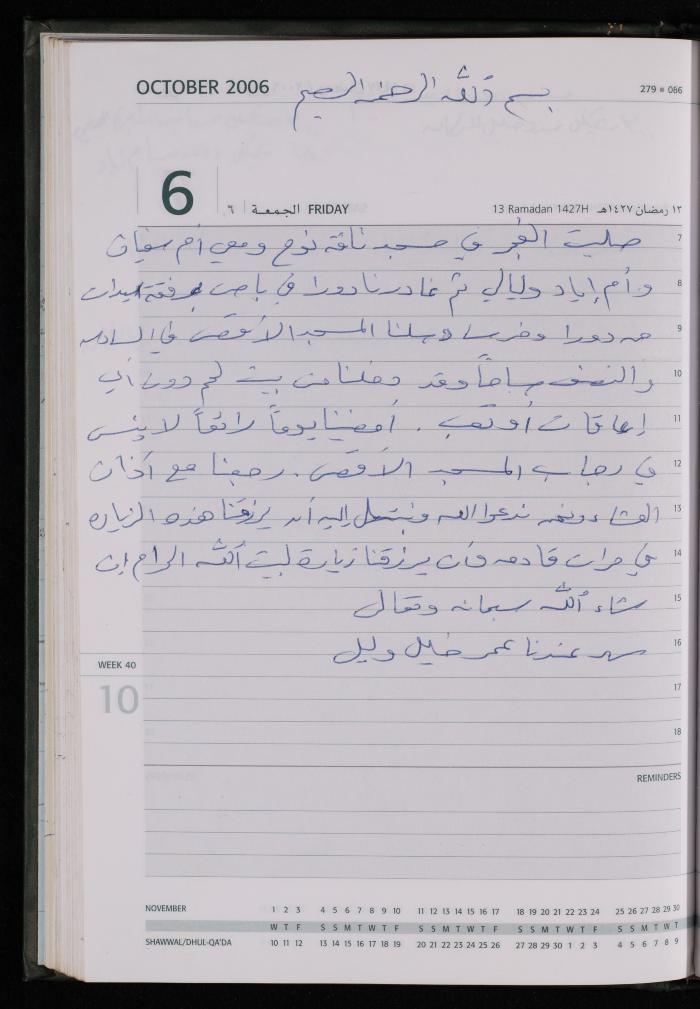 OCTOBER 2006 بسم الله الرحمن الرحيم 279 ■ 086
6 ٦ الجمعة FRIDAY 13 Ramadan 1427H ١٣ رمضان ١٤٢٧هـ
7 صليت الفجر في مسجد ناقة نوح ومعي أم سفيان
8 وأم إياد وليالي ثم غادرنا دورا في باص برفقة سيدات
9 من دورا وخرسا وصلنا المسجد الأقصى في السادسه
10 والنصف صباحاً وقد دخلنا من بيت لحم دون أي
11 إعاقات أو تعب . أمضينا يوماً رائعاً لا ينسى
12 في رحاب المسجد الأقصى . رجعنا مع أذان
13 العشاء ونحن ندعوا الله ونبتهل إليه أن يرزقنا هذه الزياره
14 في مرات قادمه وأن يرزقنا زيارة لبيت الله الحرام إن
15 شاء الله سبحانه وتعالى
16 سهر عندنا عمر خليل وليل
WEEK 40
10
17
18
REMINDERS
NOVEMBER 1 2 3 4 5 6 7 8 9 10 11 12 13 14 15 16 17 18 19 20 21 22 23 24 25 26 27 28 29 30
W T F S S M T W T F S S M T W T F S S M T W T F S S M T W T
SHAWWAL/DHUL-QA'DA 10 11 12 13 14 15 16 17 18 19 20 21 22 23 24 25 26 27 28 29 30 1 2 3 4 5 6 7 8 9